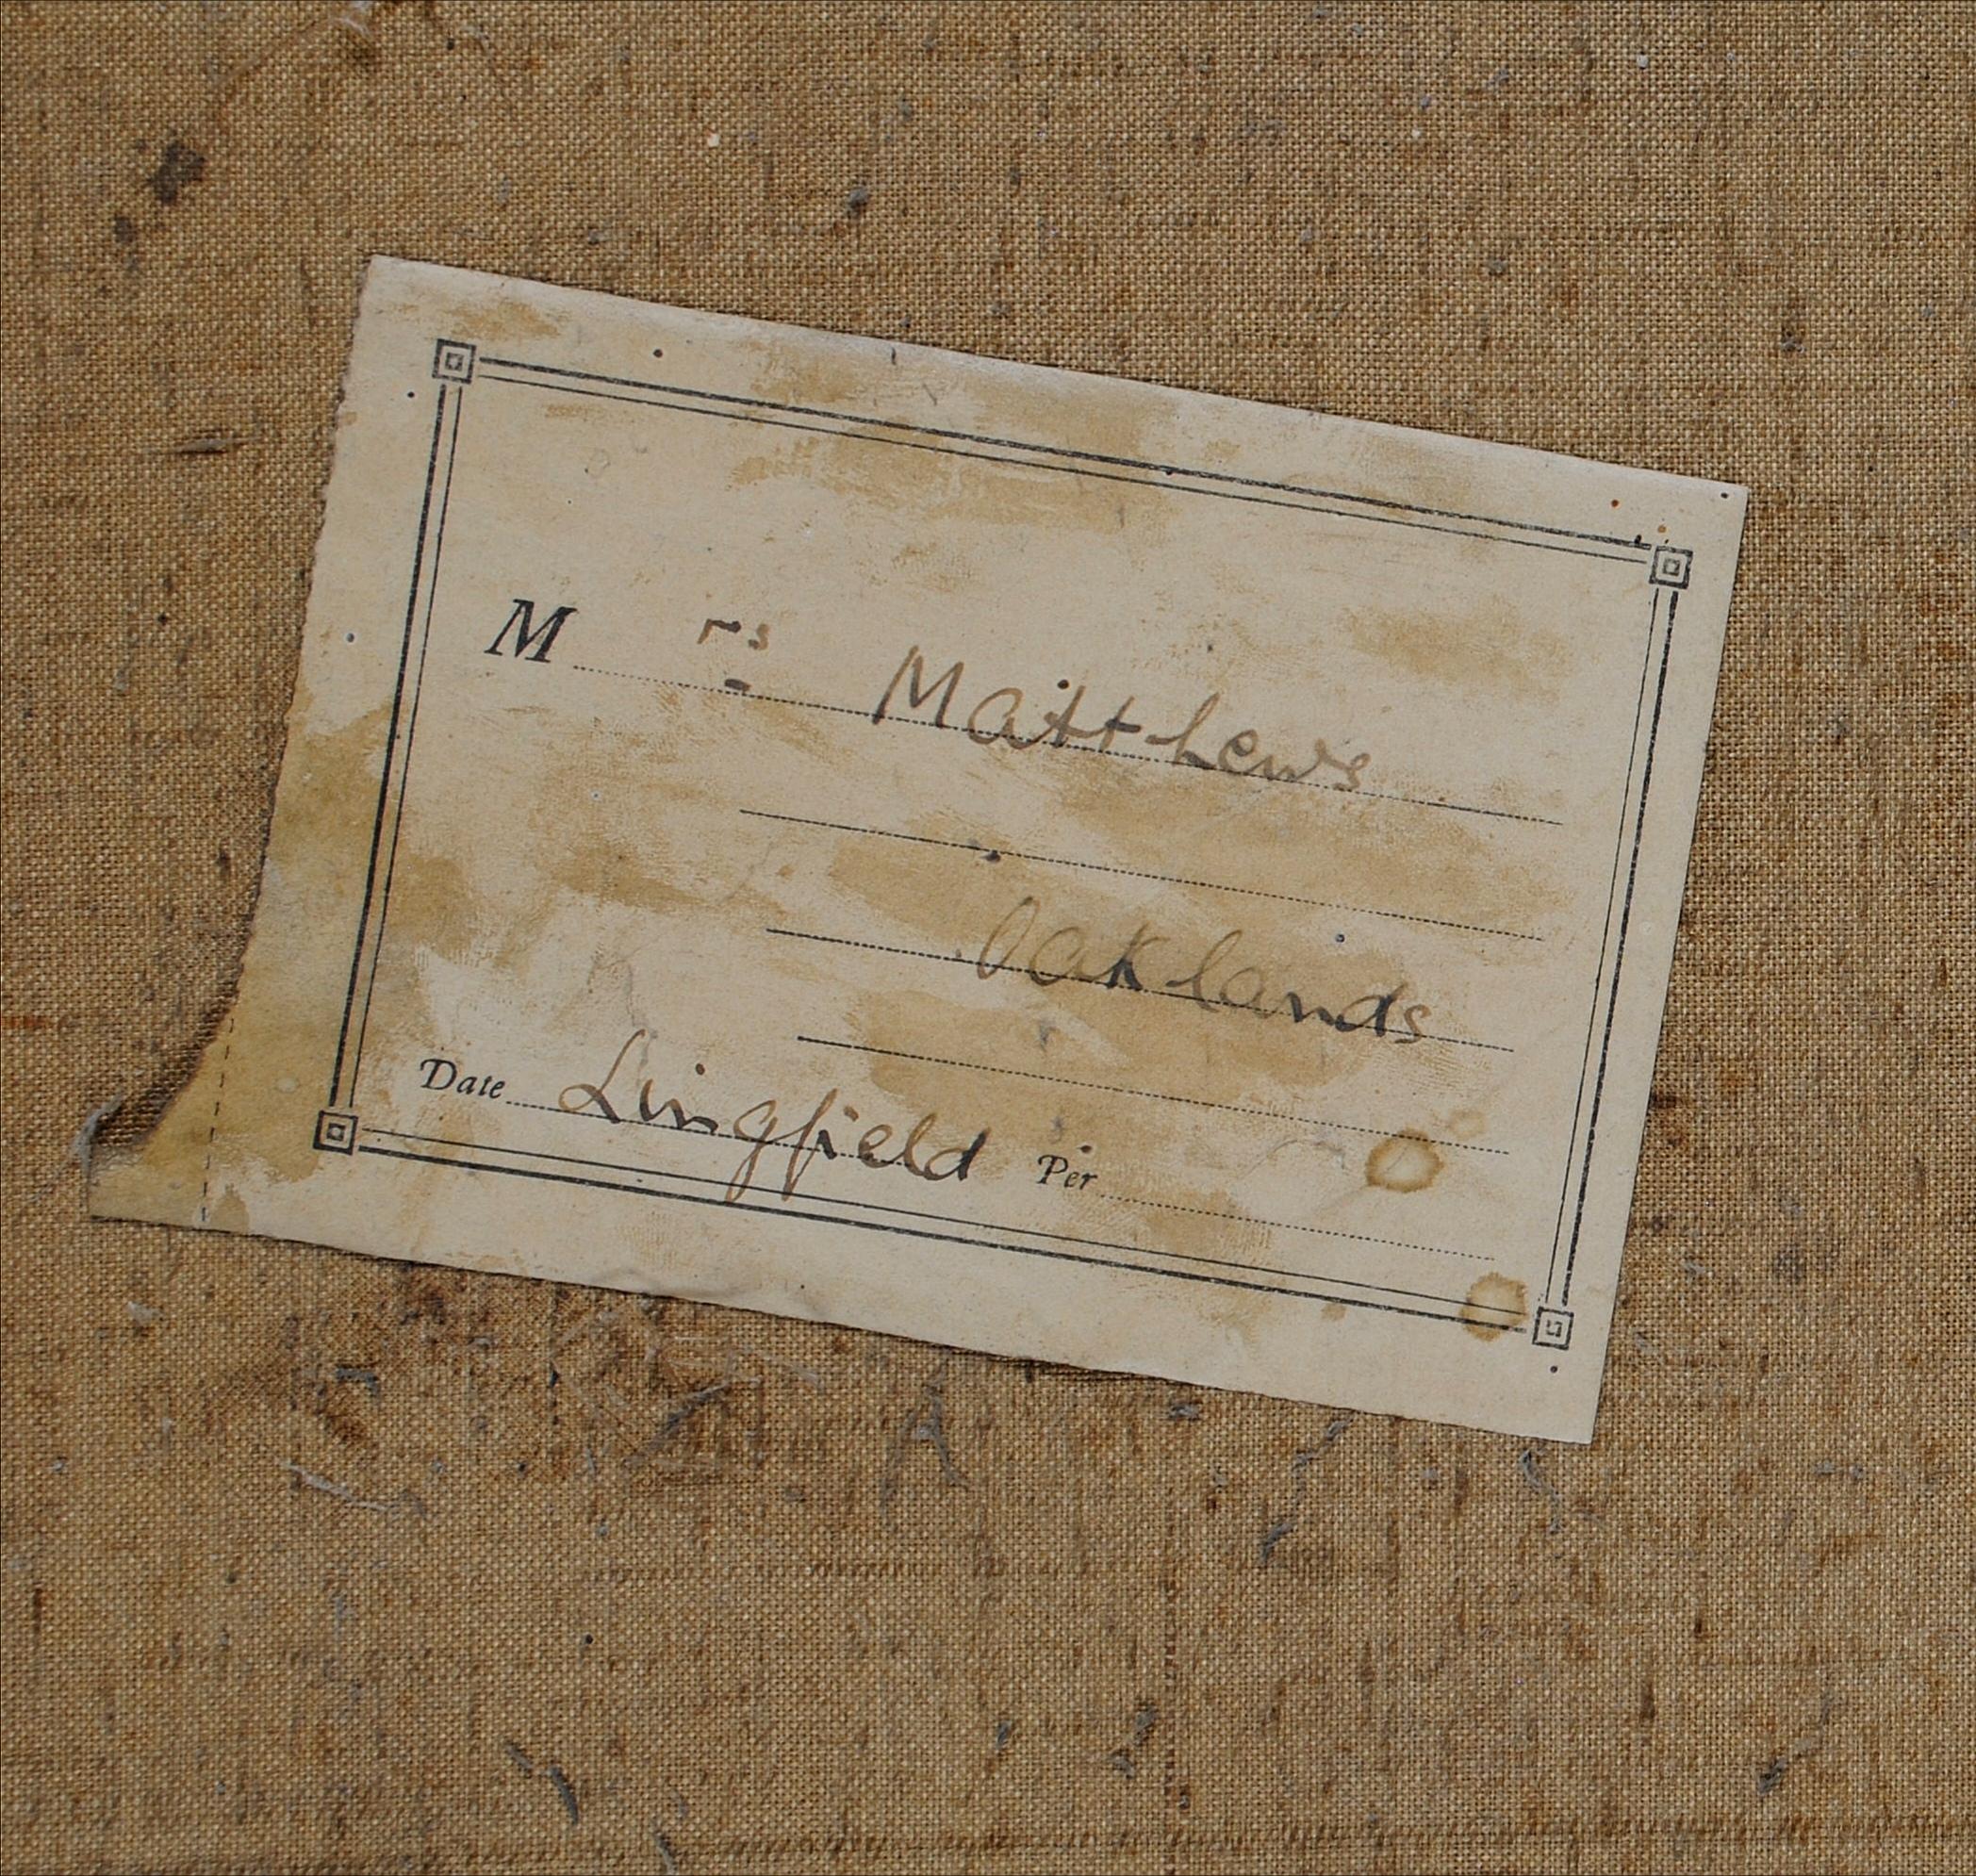 Mrs Matthews
Oaklands
Date Lingfield Per